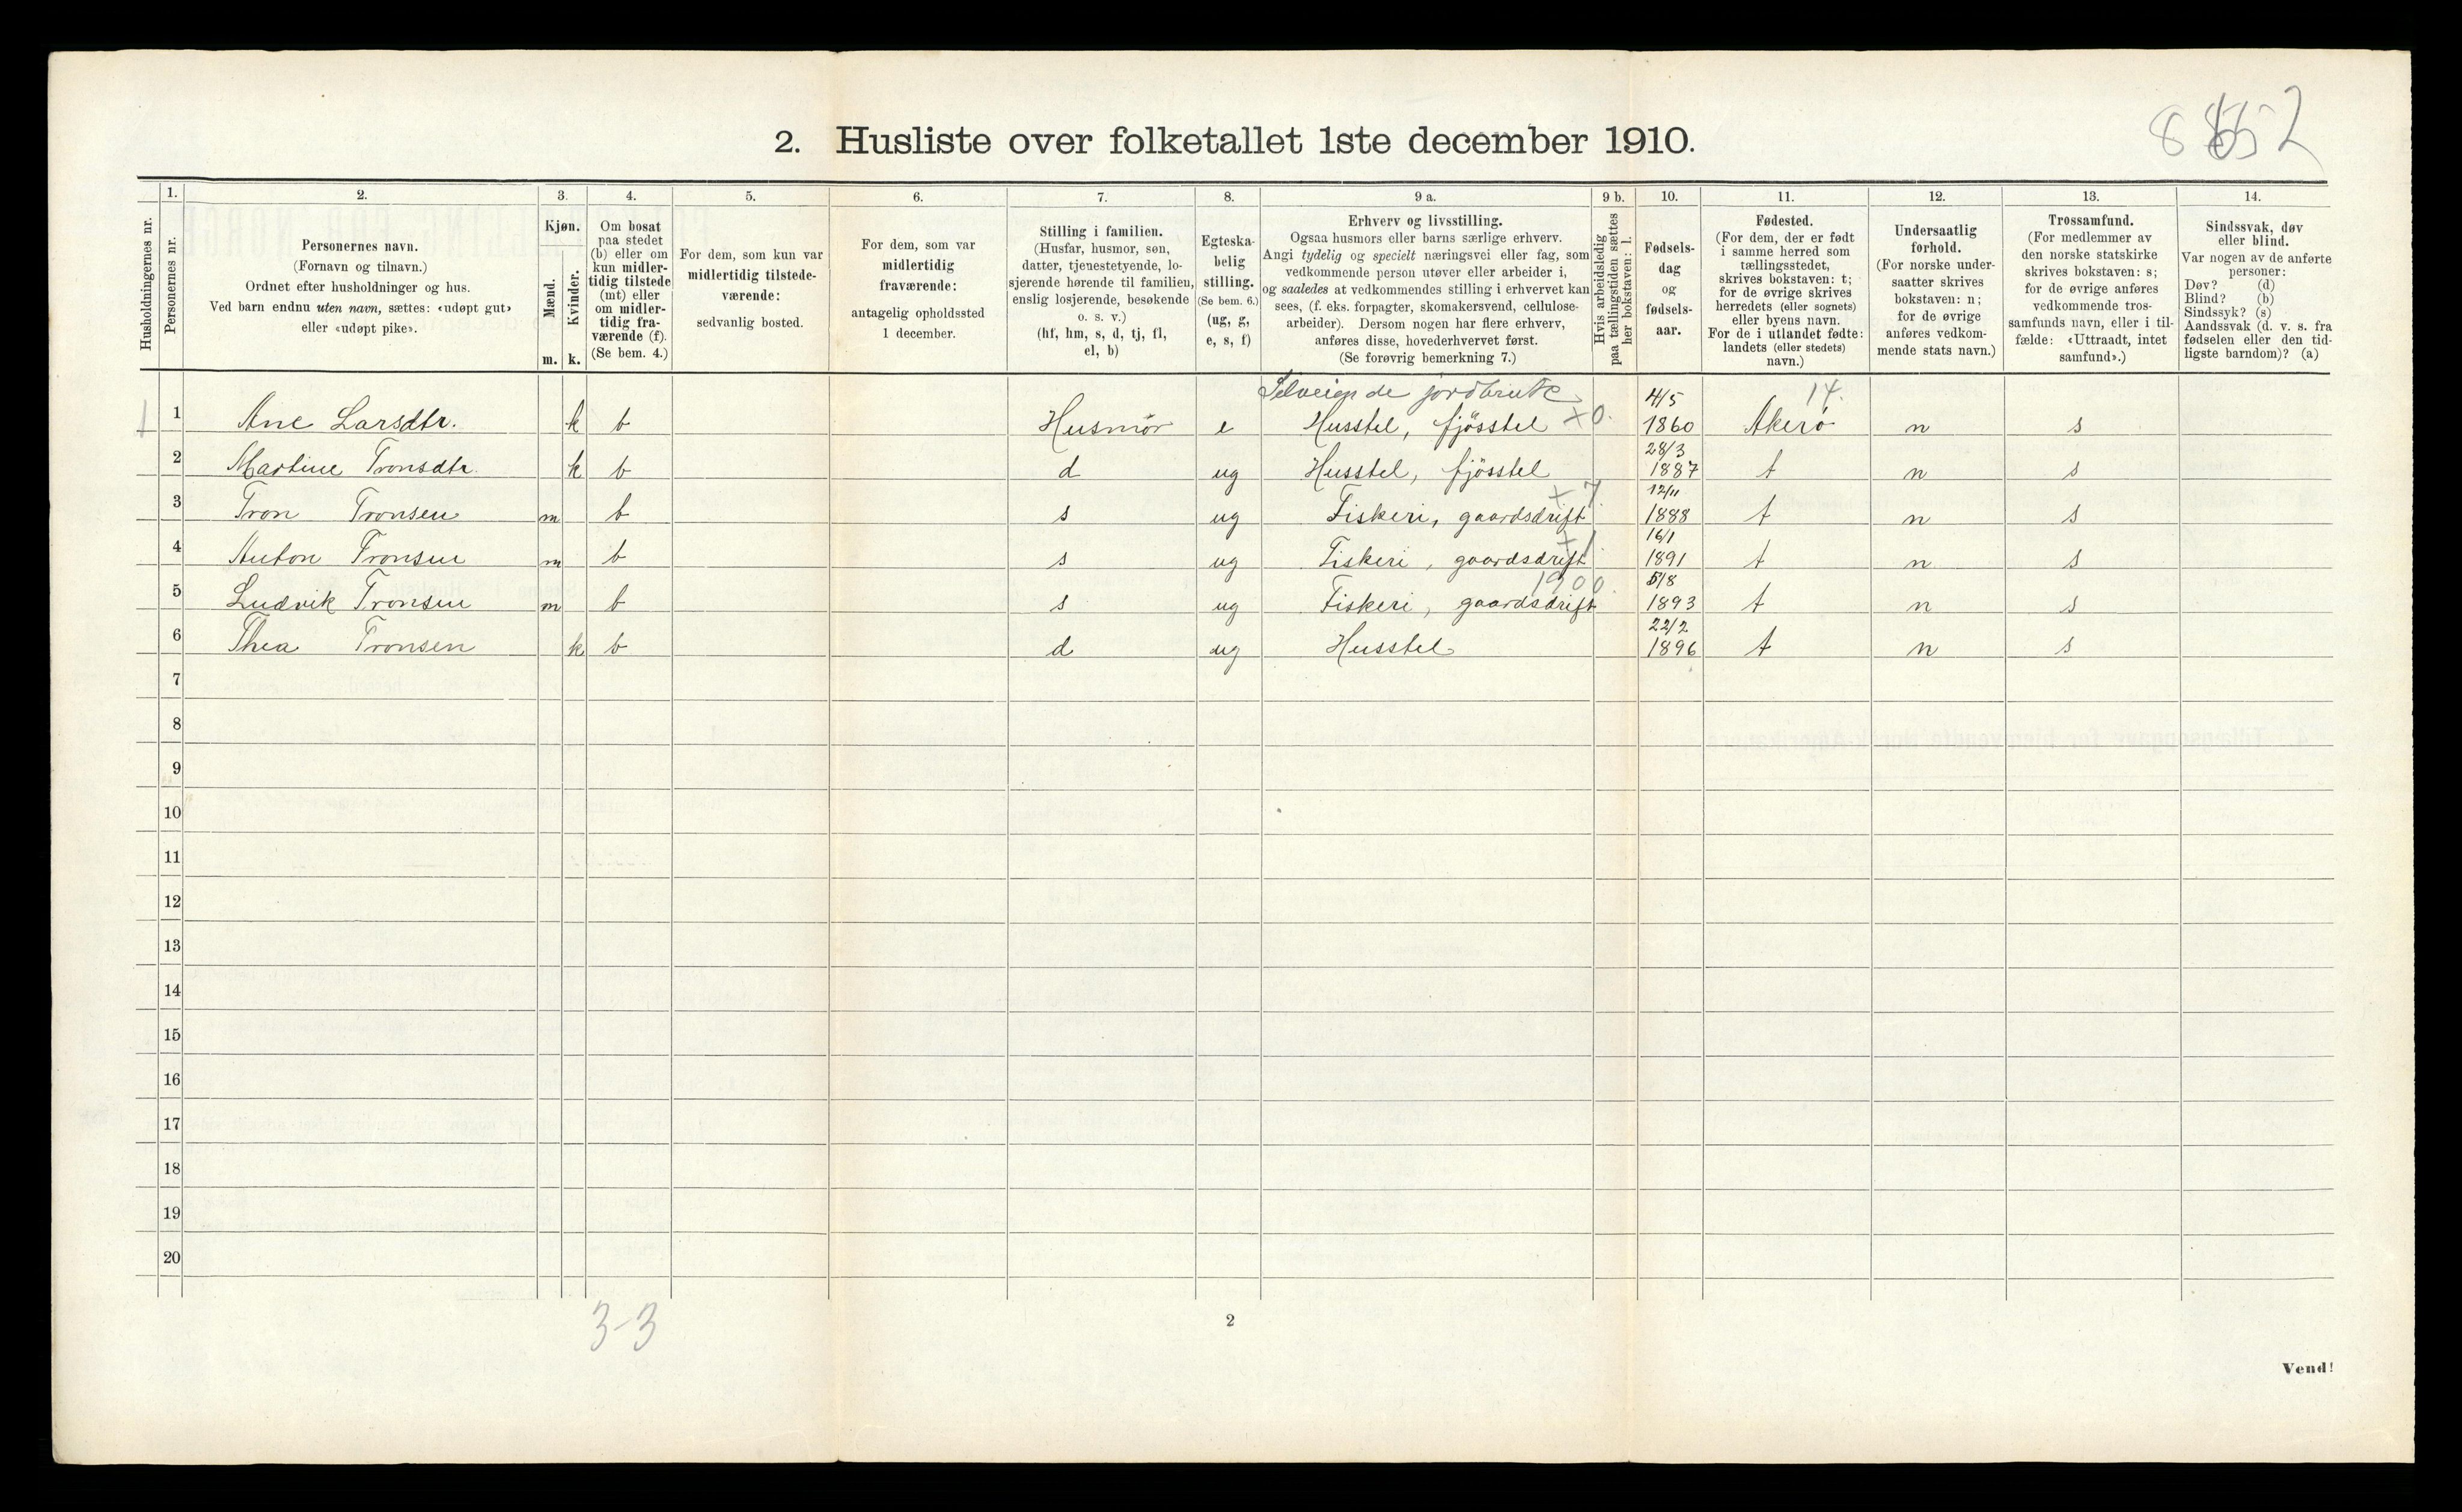 2. Husliste over folketallet 1ste december 1910.
Husholdningernes nr.
1.
Personernes nr.
2.
Personernes navn.
(Fornavn og tilnavn.)
Ordnet efter husholdninger og hus.
Ved barn endnu uten navn, sættes: «udøpt gut»
eller «udøpt pike».
3.
Kjøn.
Mænd.
m.
Kvinder.
k.
4.
Om bosat
paa stedet
(b) eller om
kun midler-
tidig tilstede
(mt) eller
om midler-
tidig fra-
værende (f).
(Se bem. 4.)
5.
For dem, som kun var
midlertidig tilstede-
værende:
sedvanlig bosted.
6.
For dem, som var
midlertidig
fraværende:
antagelig opholdssted
1 december.
7.
Stilling i familien.
(Husfar, husmor, søn,
datter, tjenestetyende, lo-
sjerende hørende til familien,
enslig losjerende, besøkende
o. s. v.)
(hf, hm, s, d, tj, fl,
el, b)
8.
Egteska-
belig
stilling.
(Se bem. 6.)
(ug, g,
e, s, f)
9 a.
Erhverv og livsstilling.
Ogsaa husmors eller barns særlige erhverv.
Angi tydelig og specielt næringsvei eller fag, som
vedkommende person utøver eller arbeider i,
og saaledes at vedkommendes stilling i erhvervet kan
sees, (f. eks. forpagter, skomakersvend, cellulose-
arbeider). Dersom nogen har flere erhverv,
anføres disse, hovederhvervet først.
(Se forøvrig bemerkning 7.)
9 b.
Hvis arbeidsledig
paa tællingstiden sættes
her bokstaven: l.
10.
Fødsels-
dag
og
fødsels-
aar.
11.
Fødested.
(For dem, der er født
i samme herred som
tællingsstedet,
skrives bokstaven: t;
for de øvrige skrives
herredets (eller sognets)
eller byens navn.
For de i utlandet fødte:
landets (eller stedets)
navn.)
12.
Undersaatlig
forhold.
(For norske under-
saatter skrives
bokstaven: n;
for de øvrige
anføres vedkom-
mende stats navn.)
13.
Trossamfund.
(For medlemmer av
den norske statskirke
skrives bokstaven: s;
for de øvrige anføres
vedkommende tros-
samfunds navn, eller i til-
fælde: «Uttraadt, intet
samfund».)
14.
Sindssvak, døv
eller blind.
Var nogen av de anførte
personer:
Døv? (d)
Blind? (b)
Sindssyk? (s)
Aandssvak (d. v. s. fra
fødselen eller den tid-
ligste barndom)? (a)
Selveiende jordbruk 4/5 14.
1 1 Ane Larsdtr. k b Husmor e Husstel, fjösstel x0. 1860 Akerö n s
28/3
2 Martine Tronsdtr. k b d ug Husstel, fjösstel 1887 t n s
x7 12/11
3 Tron Tronsen m b s ug Fiskeri, gaardsdrift 1888 t n s
16/1
4 Anton Tronsen m b s ug Fiskeri, gaardsdrift 1891 t n s
1900. 5/8
5 Ludvik Tronsen m b s ug Fiskeri, gaardsdrift 1893 t n s
22/2
6 Thea Tronsen k b d ug Husstel 1896 t n s
7
8
9
10
11
12
13
14
15
16
17
18
19
20
3-3
2
Vend!